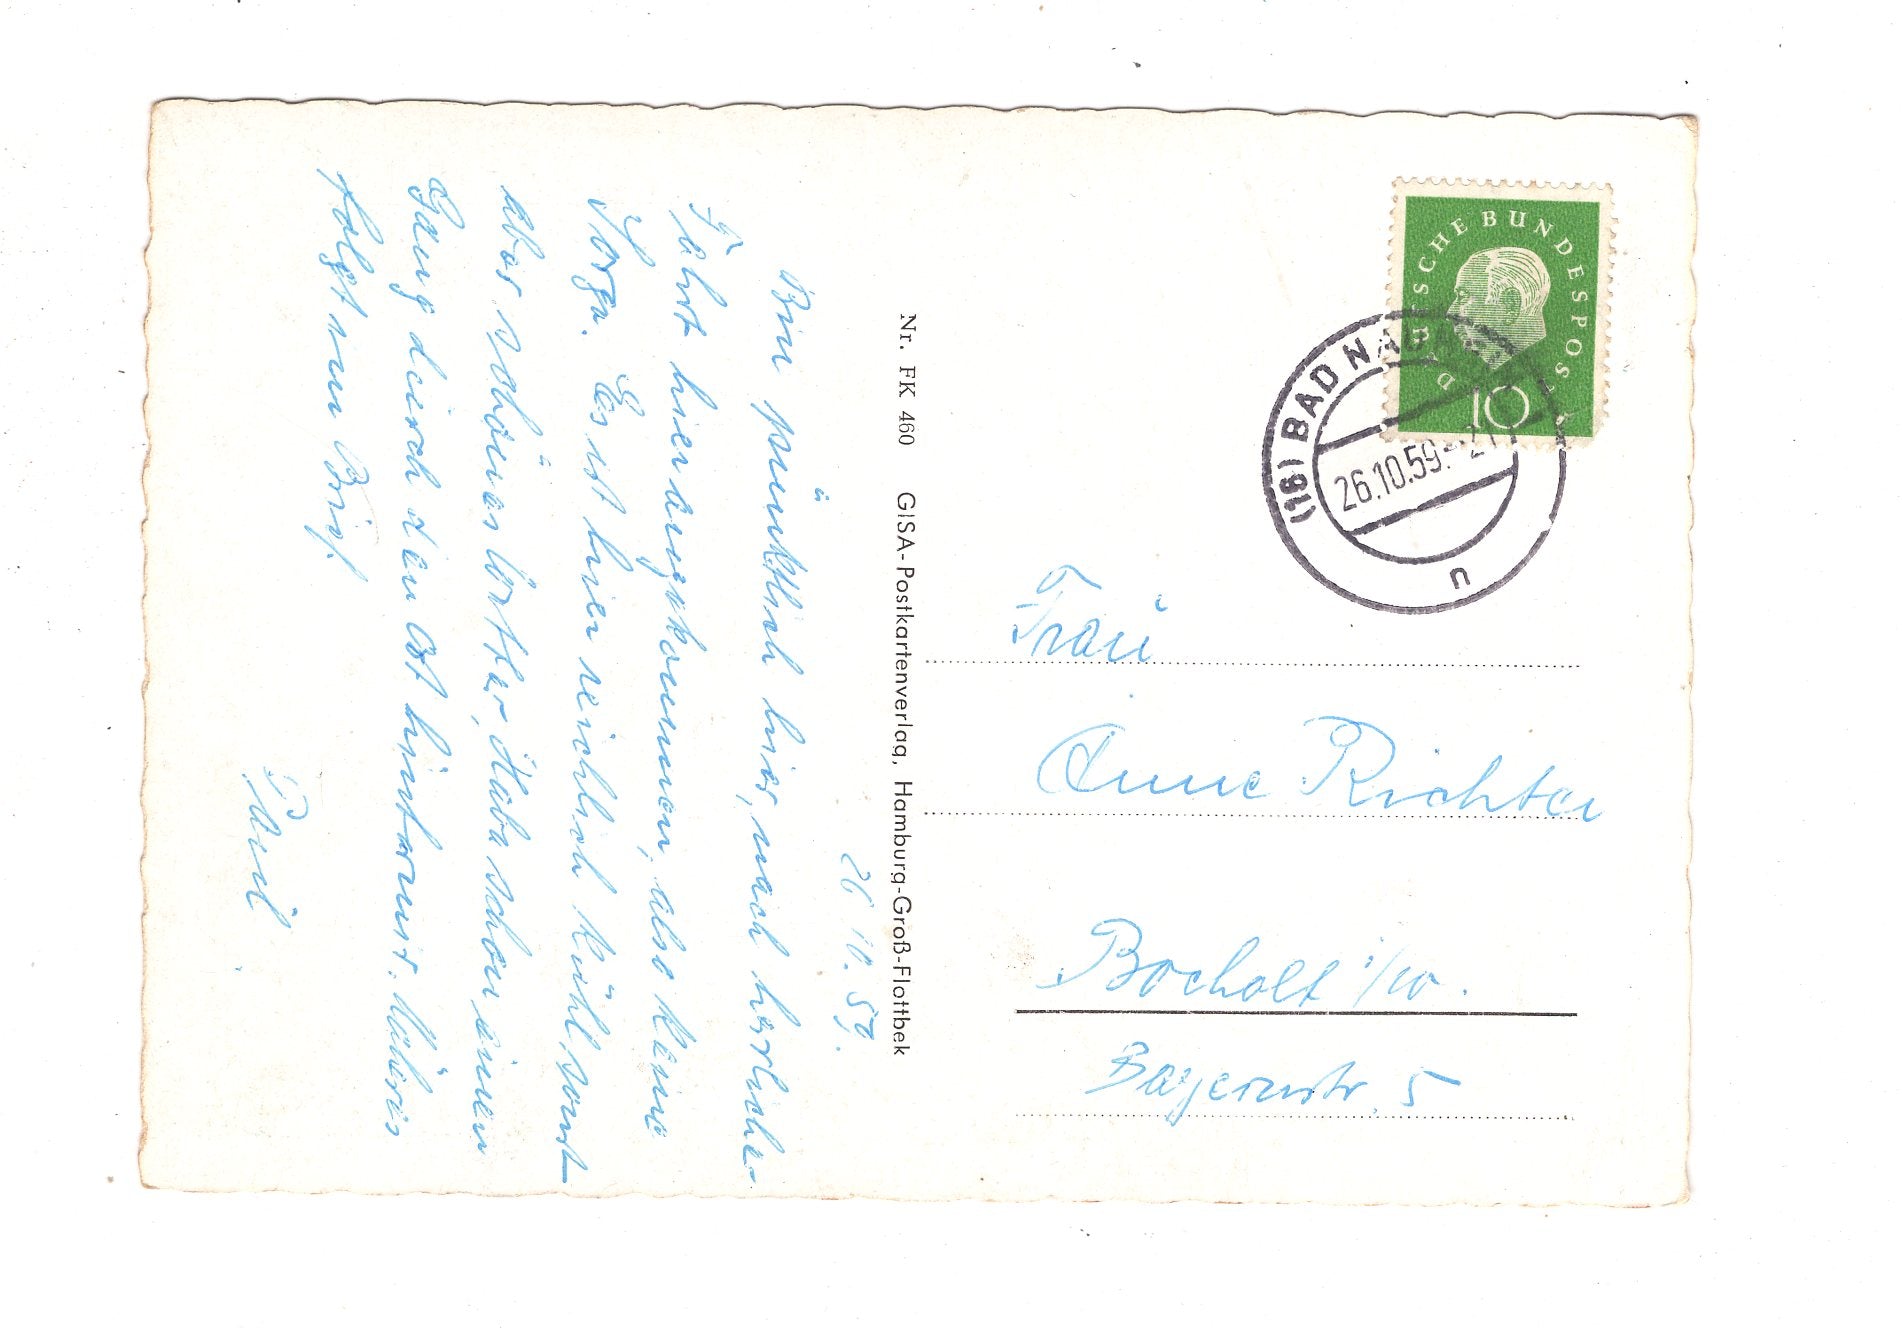 26.10.59.
Bin pünktlich hier, nach herrlicher
Fahrt hier angekommen, also keine
Sorge. Es ist hier reichlich kühl, sonst
aber schönes Wetter, Habe schon einen
Gang durch den Ort hinter mir. Näheres
folgt im Brief.
Paul
Nr. FK 460 GISA-Postkartenverlag, Hamburg-Groß-Flottbek
DEUTSCHE BUNDESPOST
10
(16) BAD NAUHEIM
26.10.59.-21
n
Frau
Änne Richter
Bocholt i/W.
Bayernstr. 5